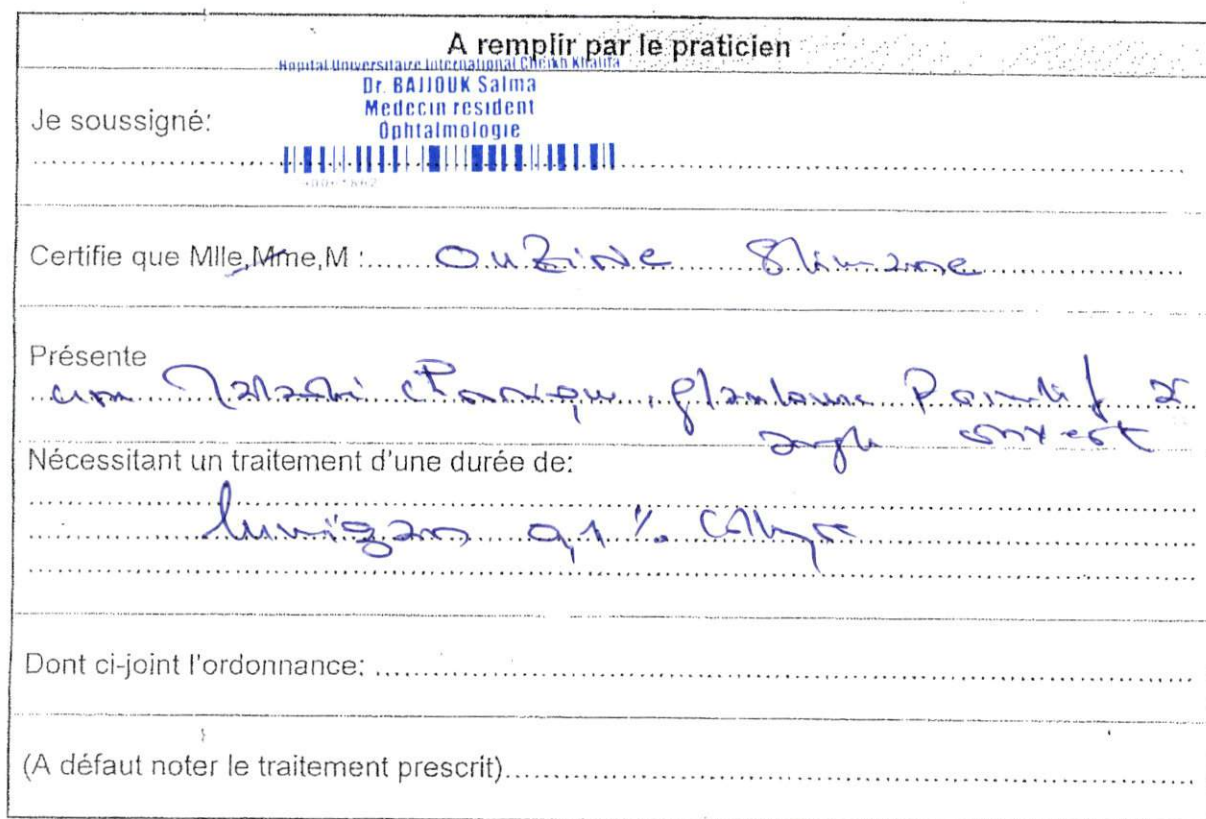 A remplir par le praticien
Hopital Universitaire International Cheikh Khalifa
Dr. BAJJOUK Salma
Medecin resident
Ophtalmologie
Je soussigné:
Certifie que Mlle,Mme,M : Ouzine Slimane
Présente
une maladie chronique, glaucome Primitif à
angle ouvert
Nécessitant un traitement d'une durée de:
lumigan 0,1 % collyre
Dont ci-joint l'ordonnance:
(A défaut noter le traitement prescrit)